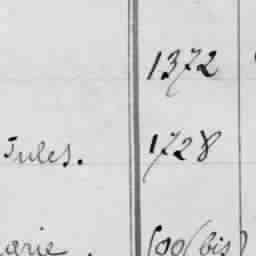 1372
Jules. 1728
arie. 600 (bis)